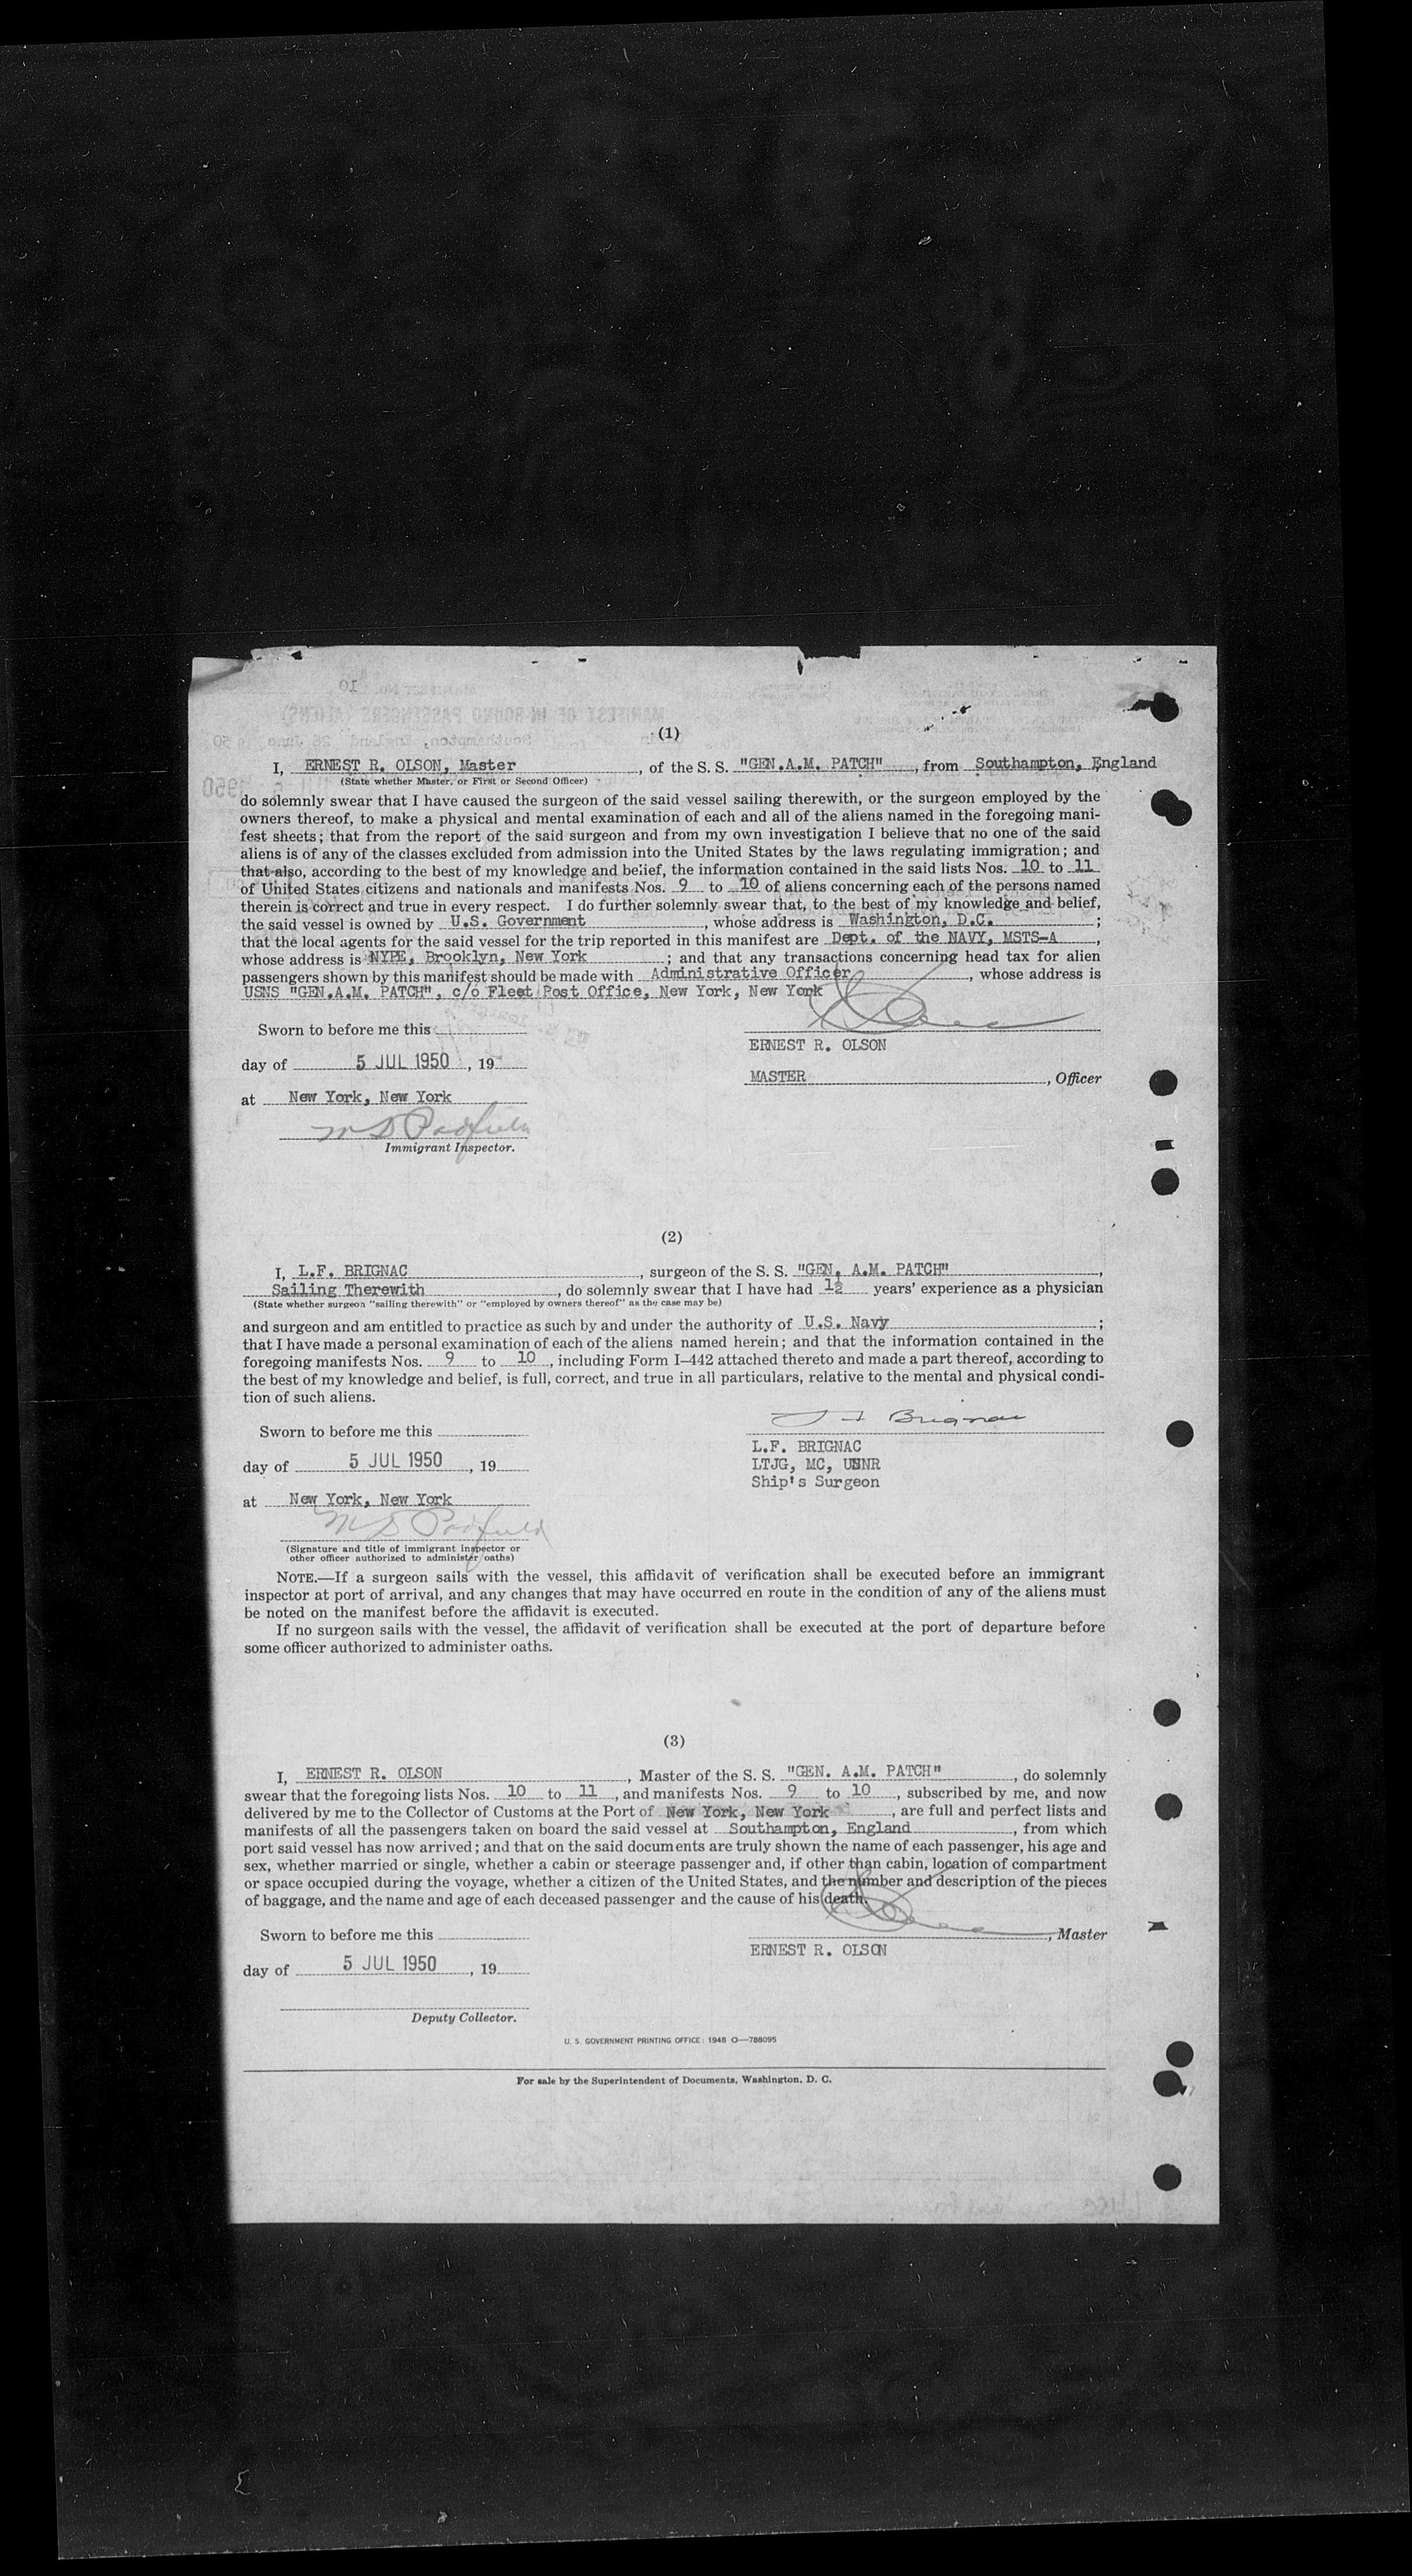 (1)
I, ERNEST R. OLSON, Master, of the S. S. "GEN.A.M. PATCH", from Southampton, England
(State whether Master, or First or Second Officer)
do solemnly swear that I have caused the surgeon of the said vessel sailing therewith, or the surgeon employed by the
owners thereof, to make a physical and mental examination of each and all of the aliens named in the foregoing mani-
fest sheets; that from the report of the said surgeon and from my own investigation I believe that no one of the said
aliens is of any of the classes excluded from admission into the United States by the laws regulating immigration; and
that also, according to the best of my knowledge and belief, the information contained in the said lists Nos. 10 to 11
of United States citizens and nationals and manifests Nos. 9 to 10 of aliens concerning each of the persons named
therein is correct and true in every respect. I do further solemnly swear that, to the best of my knowledge and belief,
the said vessel is owned by U.S. Government, whose address is Washington, D.C.;
that the local agents for the said vessel for the trip reported in this manifest are Dept. of the NAVY, MSTS-A,
whose address is NYPE, Brooklyn, New York; and that any transactions concerning head tax for alien
passengers shown by this manifest should be made with Administrative Officer, whose address is
USNS "GEN.A.M. PATCH", c/o Fleet Post Office, New York, New York
Sworn to before me this
ERNEST R. OLSON
day of 5 JUL 1950, 19
MASTER, Officer
at New York, New York
M S Padfield
Immigrant Inspector.
(2)
I, L.F. BRIGNAC, surgeon of the S. S. "GEN. A.M. PATCH",
Sailing Therewith, do solemnly swear that I have had 1½ years' experience as a physician
(State whether surgeon "sailing therewith" or "employed by owners thereof" as the case may be)
and surgeon and am entitled to practice as such by and under the authority of U.S. Navy;
that I have made a personal examination of each of the aliens named herein; and that the information contained in the
foregoing manifests Nos. 9 to 10, including Form I–442 attached thereto and made a part thereof, according to
the best of my knowledge and belief, is full, correct, and true in all particulars, relative to the mental and physical condi-
tion of such aliens.
L F Brignac
Sworn to before me this
L.F. BRIGNAC
day of 5 JUL 1950, 19
LTJG, MC, USNR
Ship's Surgeon
at New York, New York
M S Padfield
(Signature and title of immigrant inspector or
other officer authorized to administer oaths)
NOTE.—If a surgeon sails with the vessel, this affidavit of verification shall be executed before an immigrant
inspector at port of arrival, and any changes that may have occurred en route in the condition of any of the aliens must
be noted on the manifest before the affidavit is executed.
If no surgeon sails with the vessel, the affidavit of verification shall be executed at the port of departure before
some officer authorized to administer oaths.
(3)
I, ERNEST R. OLSON, Master of the S. S. "GEN. A.M. PATCH", do solemnly
swear that the foregoing lists Nos. 10 to 11, and manifests Nos. 9 to 10, subscribed by me, and now
delivered by me to the Collector of Customs at the Port of New York, New York, are full and perfect lists and
manifests of all the passengers taken on board the said vessel at Southampton, England, from which
port said vessel has now arrived; and that on the said documents are truly shown the name of each passenger, his age and
sex, whether married or single, whether a cabin or steerage passenger and, if other than cabin, location of compartment
or space occupied during the voyage, whether a citizen of the United States, and the number and description of the pieces
of baggage, and the name and age of each deceased passenger and the cause of his death.
Sworn to before me this
, Master
ERNEST R. OLSON
day of 5 JUL 1950, 19
Deputy Collector.
U. S. GOVERNMENT PRINTING OFFICE: 1948 O—788095
For sale by the Superintendent of Documents, Washington, D. C.